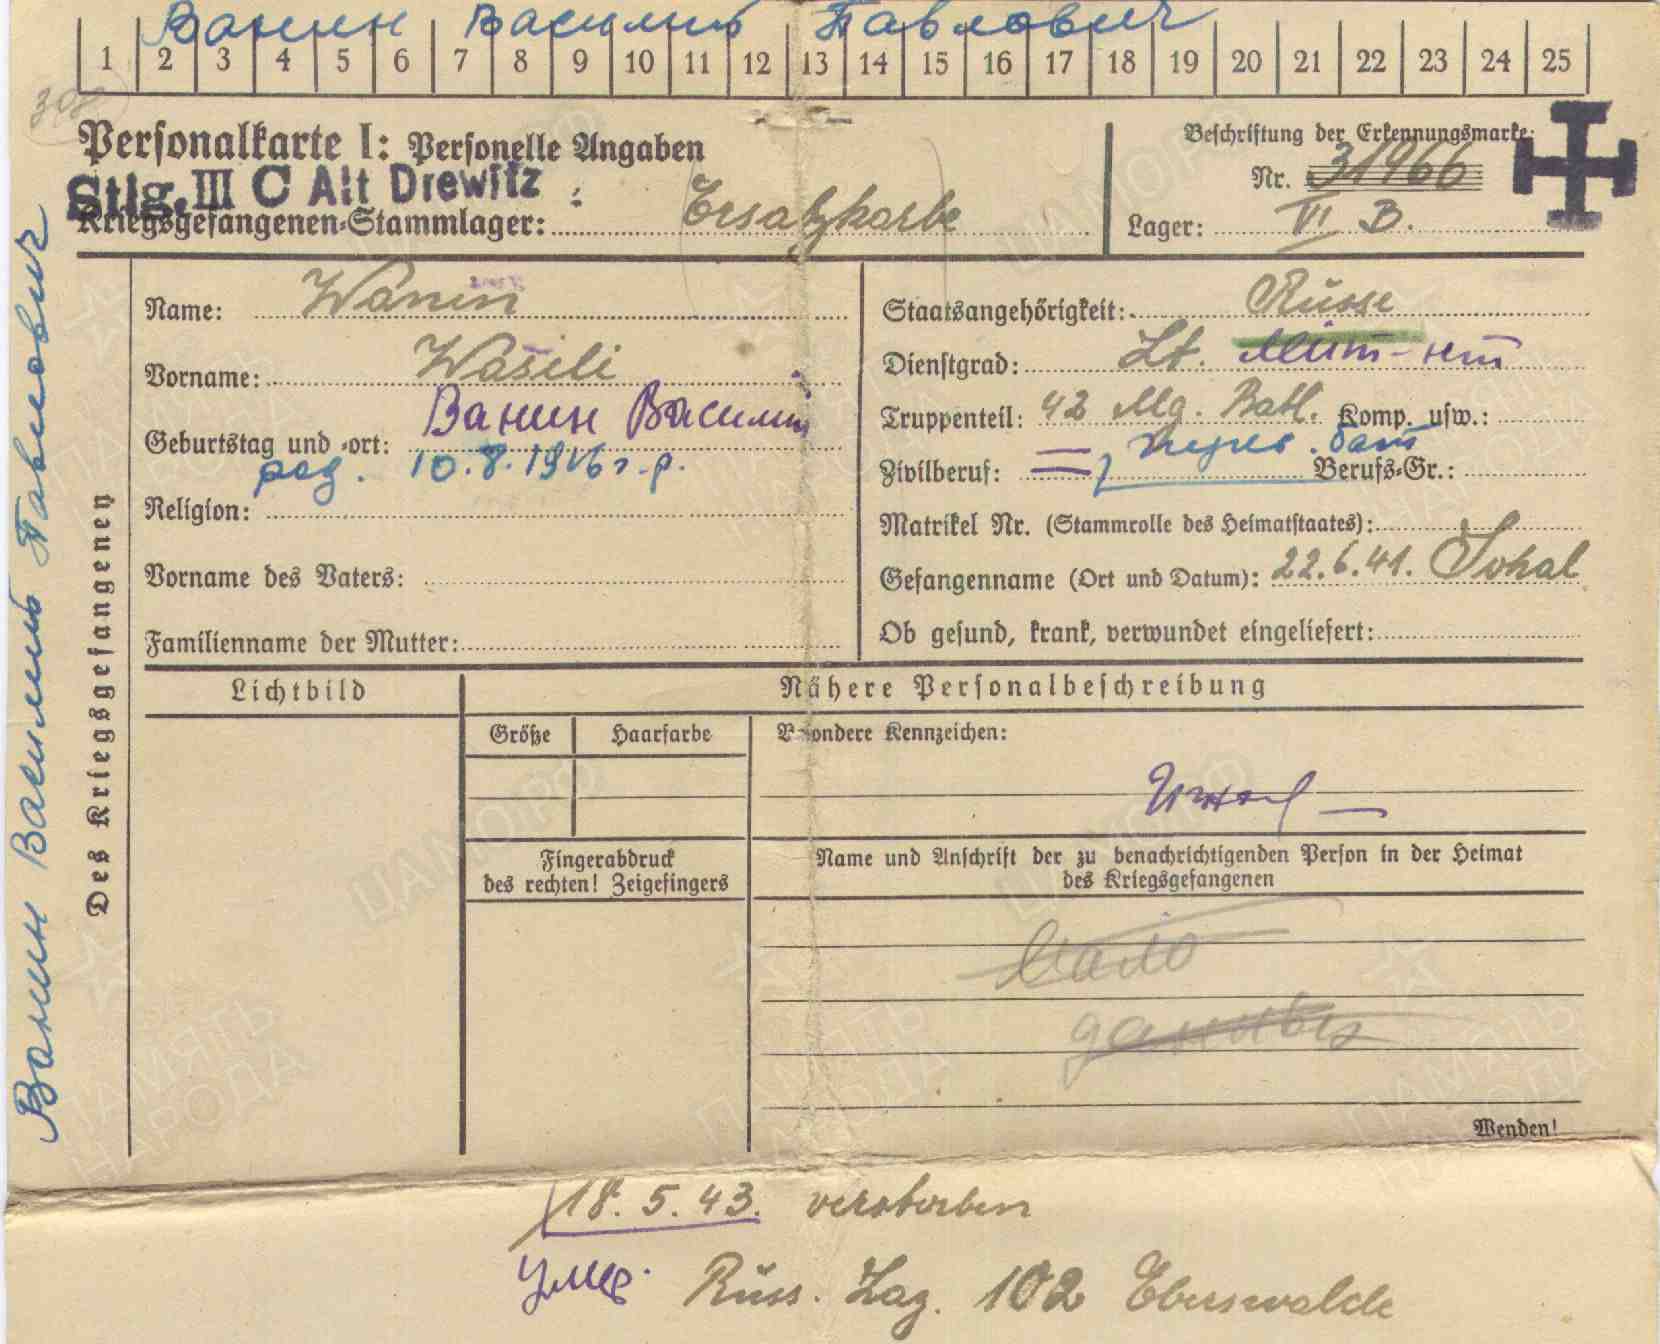 Ванин Василий Павлович
1 2 3 4 5 6 7 8 9 10 11 12 13 14 15 16 17 18 19 20 21 22 23 24 25
Personalkarte I: Personelle Angaben
Beschriftung der Erkennungsmarke:
Stlg. III C Alt Drewitz
Nr. 31966
Kriegsgefangenen-Stammlager: Ersatzkarte
Lager: VI B.
Ванин Василий Павлович
Des Kriegsgefangenen
Name: Wanin
Vorname: Wasili
Ванин Василий
Geburtstag und -ort:
род. 10.8.1916 г.р.
Religion:
Vorname des Vaters:
Familienname der Mutter:
Staatsangehörigkeit: Russe
Dienstgrad: Lt.
Truppenteil: 42 Mg. Batl. Komp. usw.:
пулем. бат
Zivilberuf: Berufs-Gr.:
Matrikel Nr. (Stammrolle des Heimatstaates):
Gefangenname (Ort und Datum): 22.6.41. Sokal
Ob gesund, krank, verwundet eingeliefert:
Lichtbild
Nähere Personalbeschreibung
Größe Haarfarbe
Besondere Kennzeichen:
Fingerabdruck
des rechten! Zeigefingers
Name und Anschrift der zu benachrichtigenden Person in der Heimat
des Kriegsgefangenen
Мало
данных
Wenden!
18. 5. 43. verstorben
умер. Russ. Laz. 102 Eberswalde
ПАМЯТЬ
НАРОДА
ЦАМО РФ